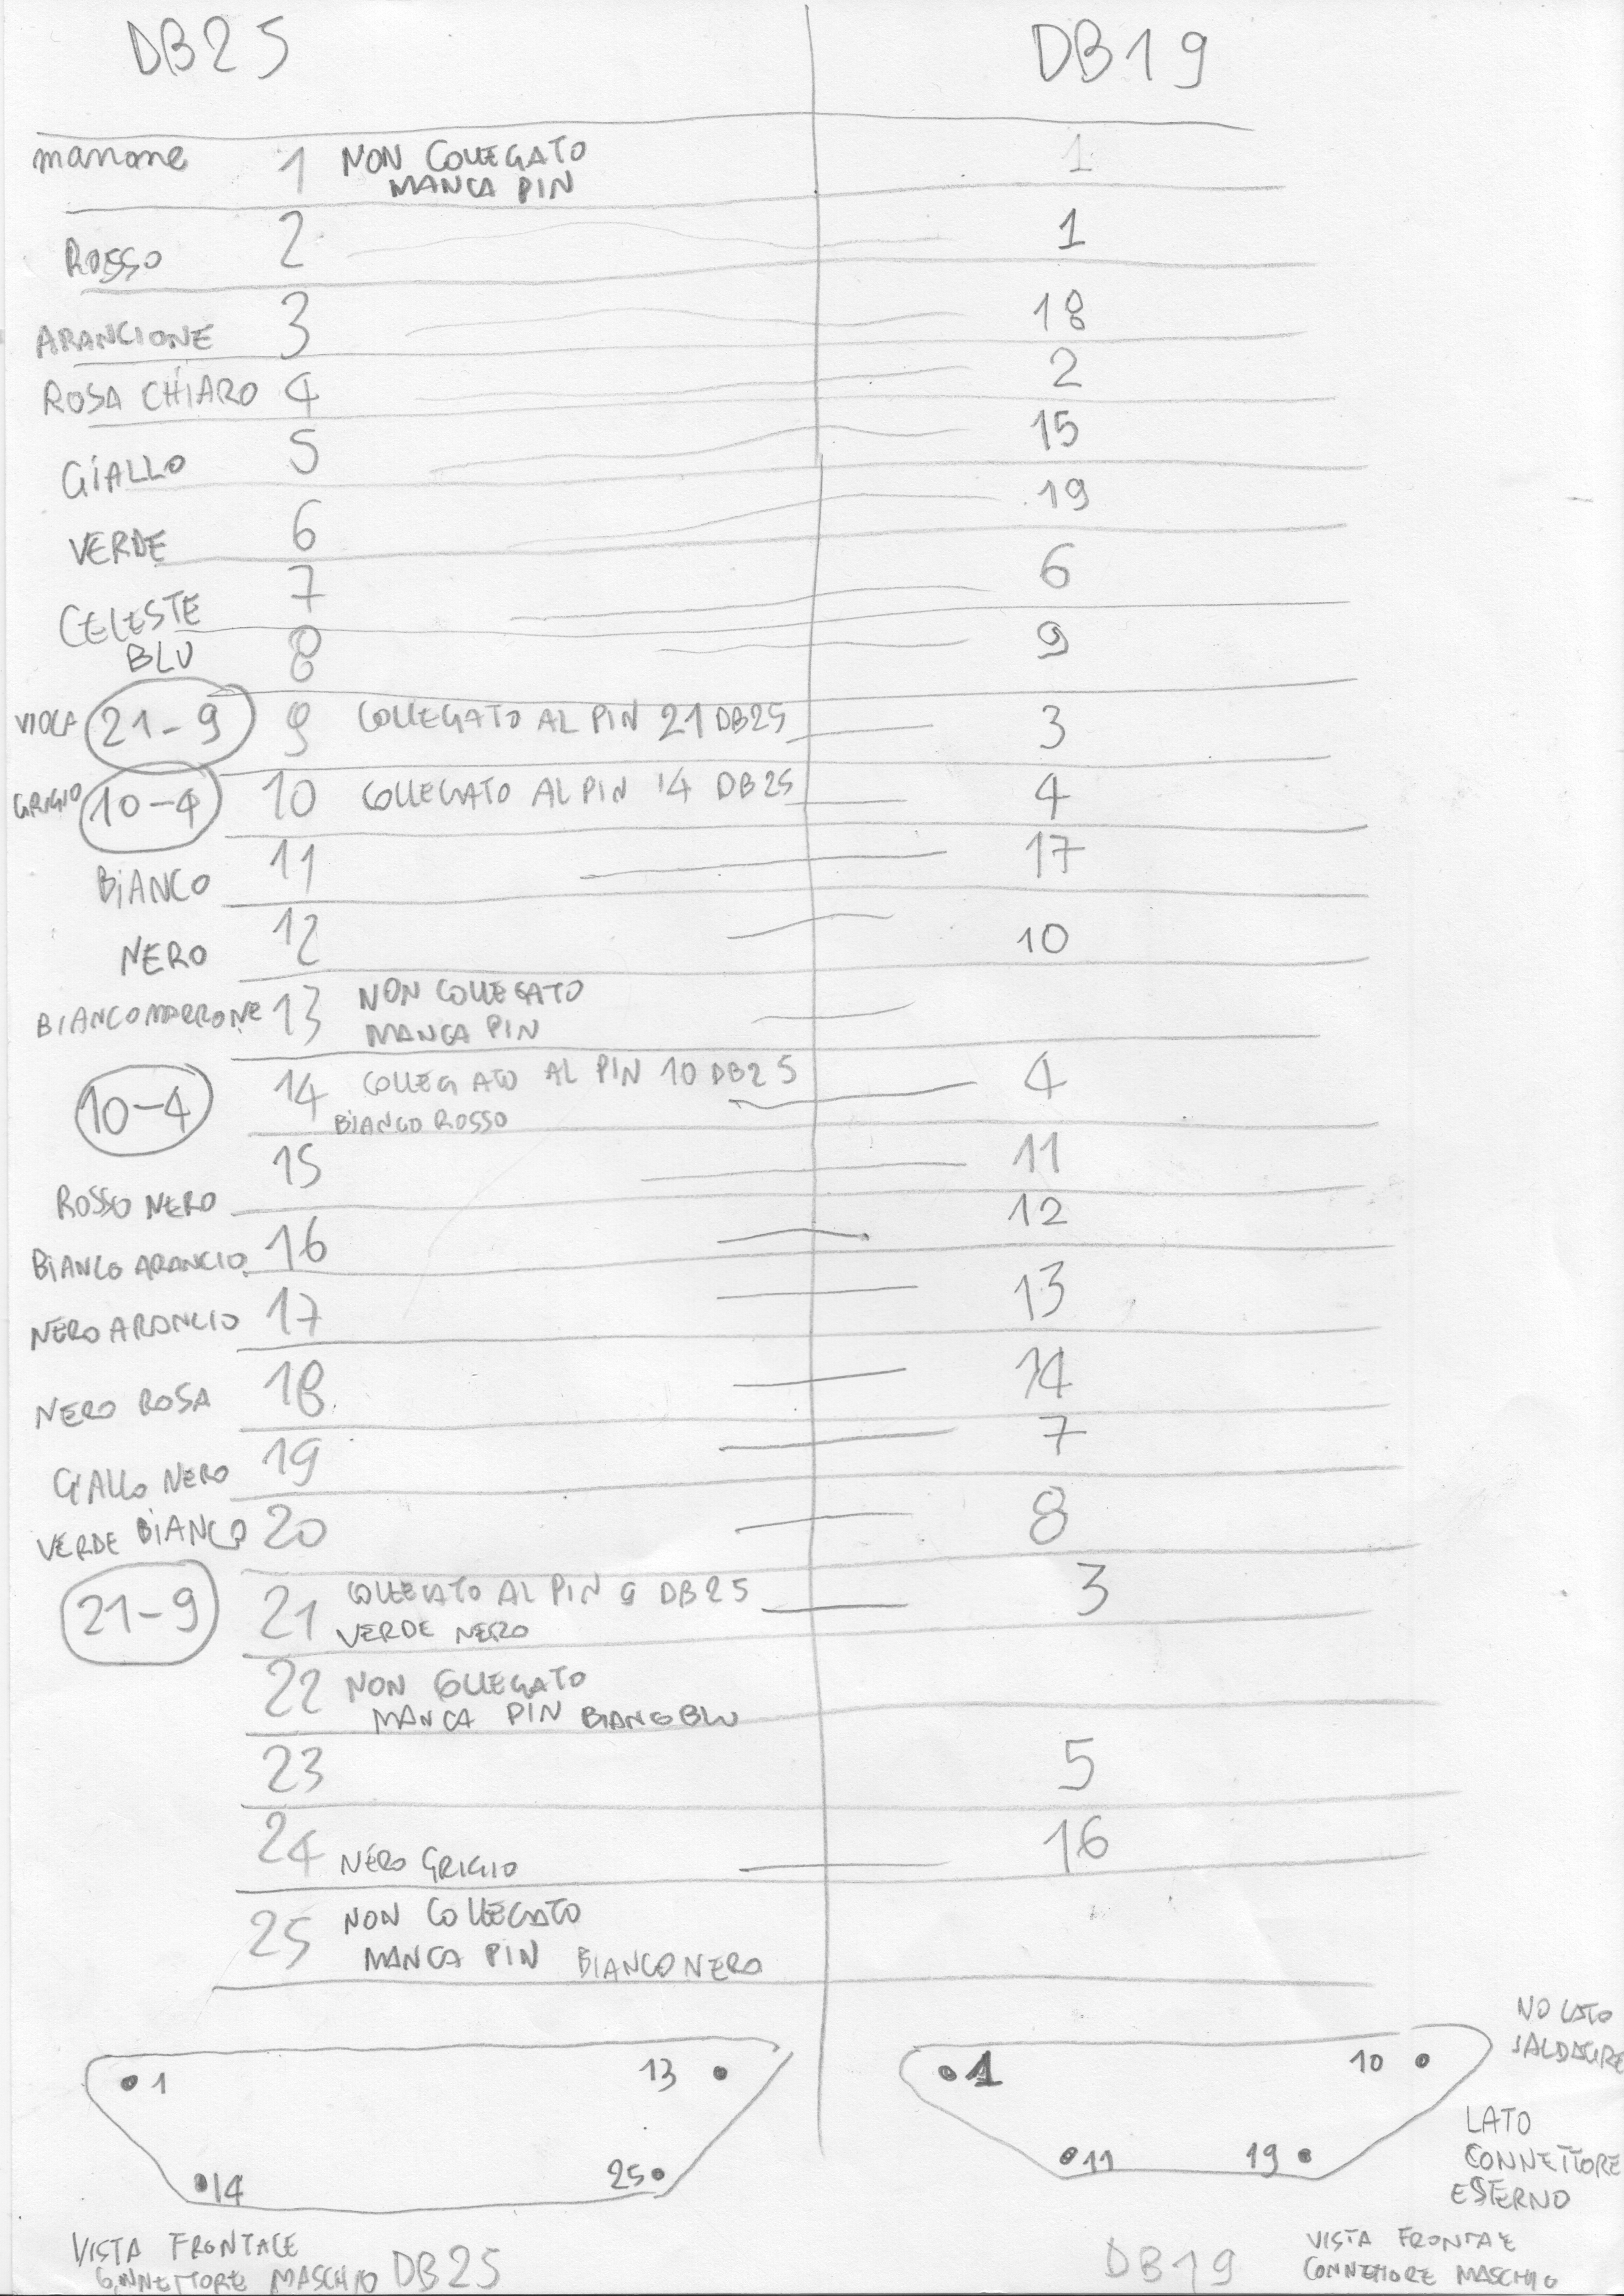 DB25 DB19
marrone 1 NON COLLEGATO 1
MANCA PIN
ROSSO 2 1
ARANCIONE 3 18
ROSA CHIARO 4 2
GIALLO 5 15
VERDE 6 19
CELESTE 7 6
BLU 8 9
VIOLA 21-9 9 COLLEGATO AL PIN 21 DB25 3
GRIGIO 10-4 10 COLLEGATO AL PIN 14 DB25 4
BIANCO 11 17
NERO 12 10
BIANCOMARRONE 13 NON COLLEGATO
MANCA PIN
10-4 14 COLLEGATO AL PIN 10 DB25 4
BIANCO ROSSO
ROSSO NERO 15 11
BIANCO ARANCIO 16 12
NERO ARANCIO 17 13
NERO ROSA 18 14
GIALLO NERO 19 7
VERDE BIANCO 20 8
21-9 21 COLLEGATO AL PIN 9 DB25 3
VERDE NERO
22 NON COLLEGATO
MANCA PIN BIANCO BLU
23 5
24 NERO GRIGIO 16
25 NON COLLEGATO
MANCA PIN BIANCO NERO
1 13
14 25
VISTA FRONTALE
CONNETTORE MASCHIO DB25
1 10
11 19
NO LATO
SALDATURE
LATO
CONNETTORE
ESTERNO
DB19
VISTA FRONTALE
CONNETTORE MASCHIO